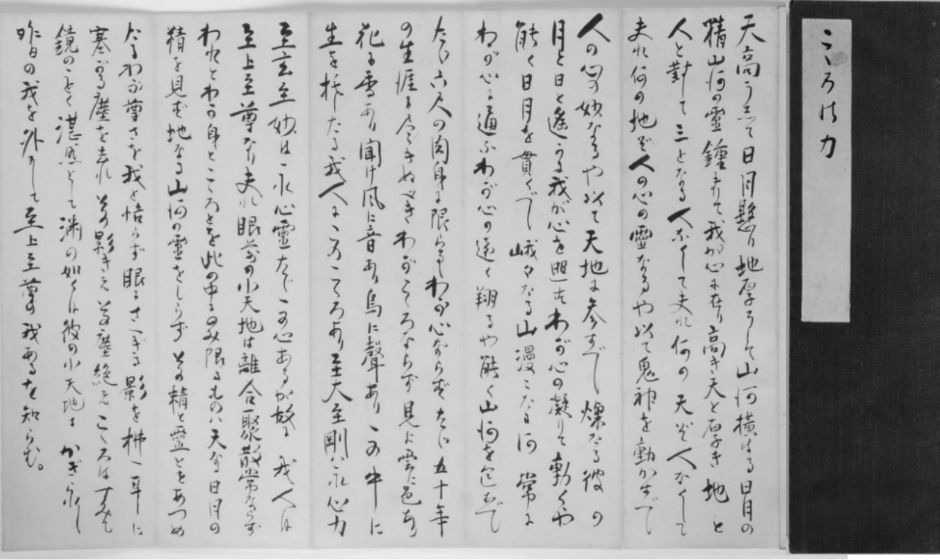 こゝろの力
天高うして日月懸り地厚うして山河横はる日月の
精山河の靈鍾まりて我が心に在り高き天と厚き地と
人と對して三となる人なくして夫れ何の天ぞ人なくして
夫れ何の地ぞ人の心の靈なるや以て鬼神を動かすべく
人の心の妙なるや以て天地に参ずべし燦たる彼の
月と日と遙かる我が心を照せわが心の凝りて動くや
能く日月を貫くべし峨々たる山漫々たる河常に
わが心に通ふわが心の遠く翔るや能く山河を包むべし
たゞ六尺の肉身に限らるゝわが心ならずたゞ五十年
の生涯に盡きぬべきわがこゝろならず見よ雲に色あり
花に香あり聞け風に音あり鳥に聲ありこの中に
生を托したる我人にこのこゝろあり至大至剛は氶心力
至玄至妙は氶心靈たゞこの心あるが故に我人は
至上至尊なり夫れ眼前の小天地は離合聚散常ならず
われとわが身とこゝろとを此の中にのみ限るものは天なる日月の
精を見ず地なる山河の靈をしらずその精と靈とをあつめ
たるわが尊さを我と悟らず眼にさへぎる影を拂へ耳に
塞がる塵を去れその影きえその塵絶えこゝろはすみて
鏡のごとく湛然として淵の如くば彼の小天地に かぎられし
昨日の我を外にして至上至尊の我あるを知らむ。